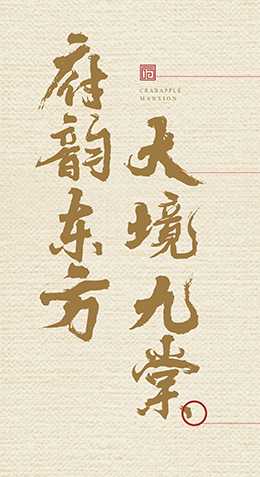 府韵东方
CRABAPPLE
MANSION
大境九棠